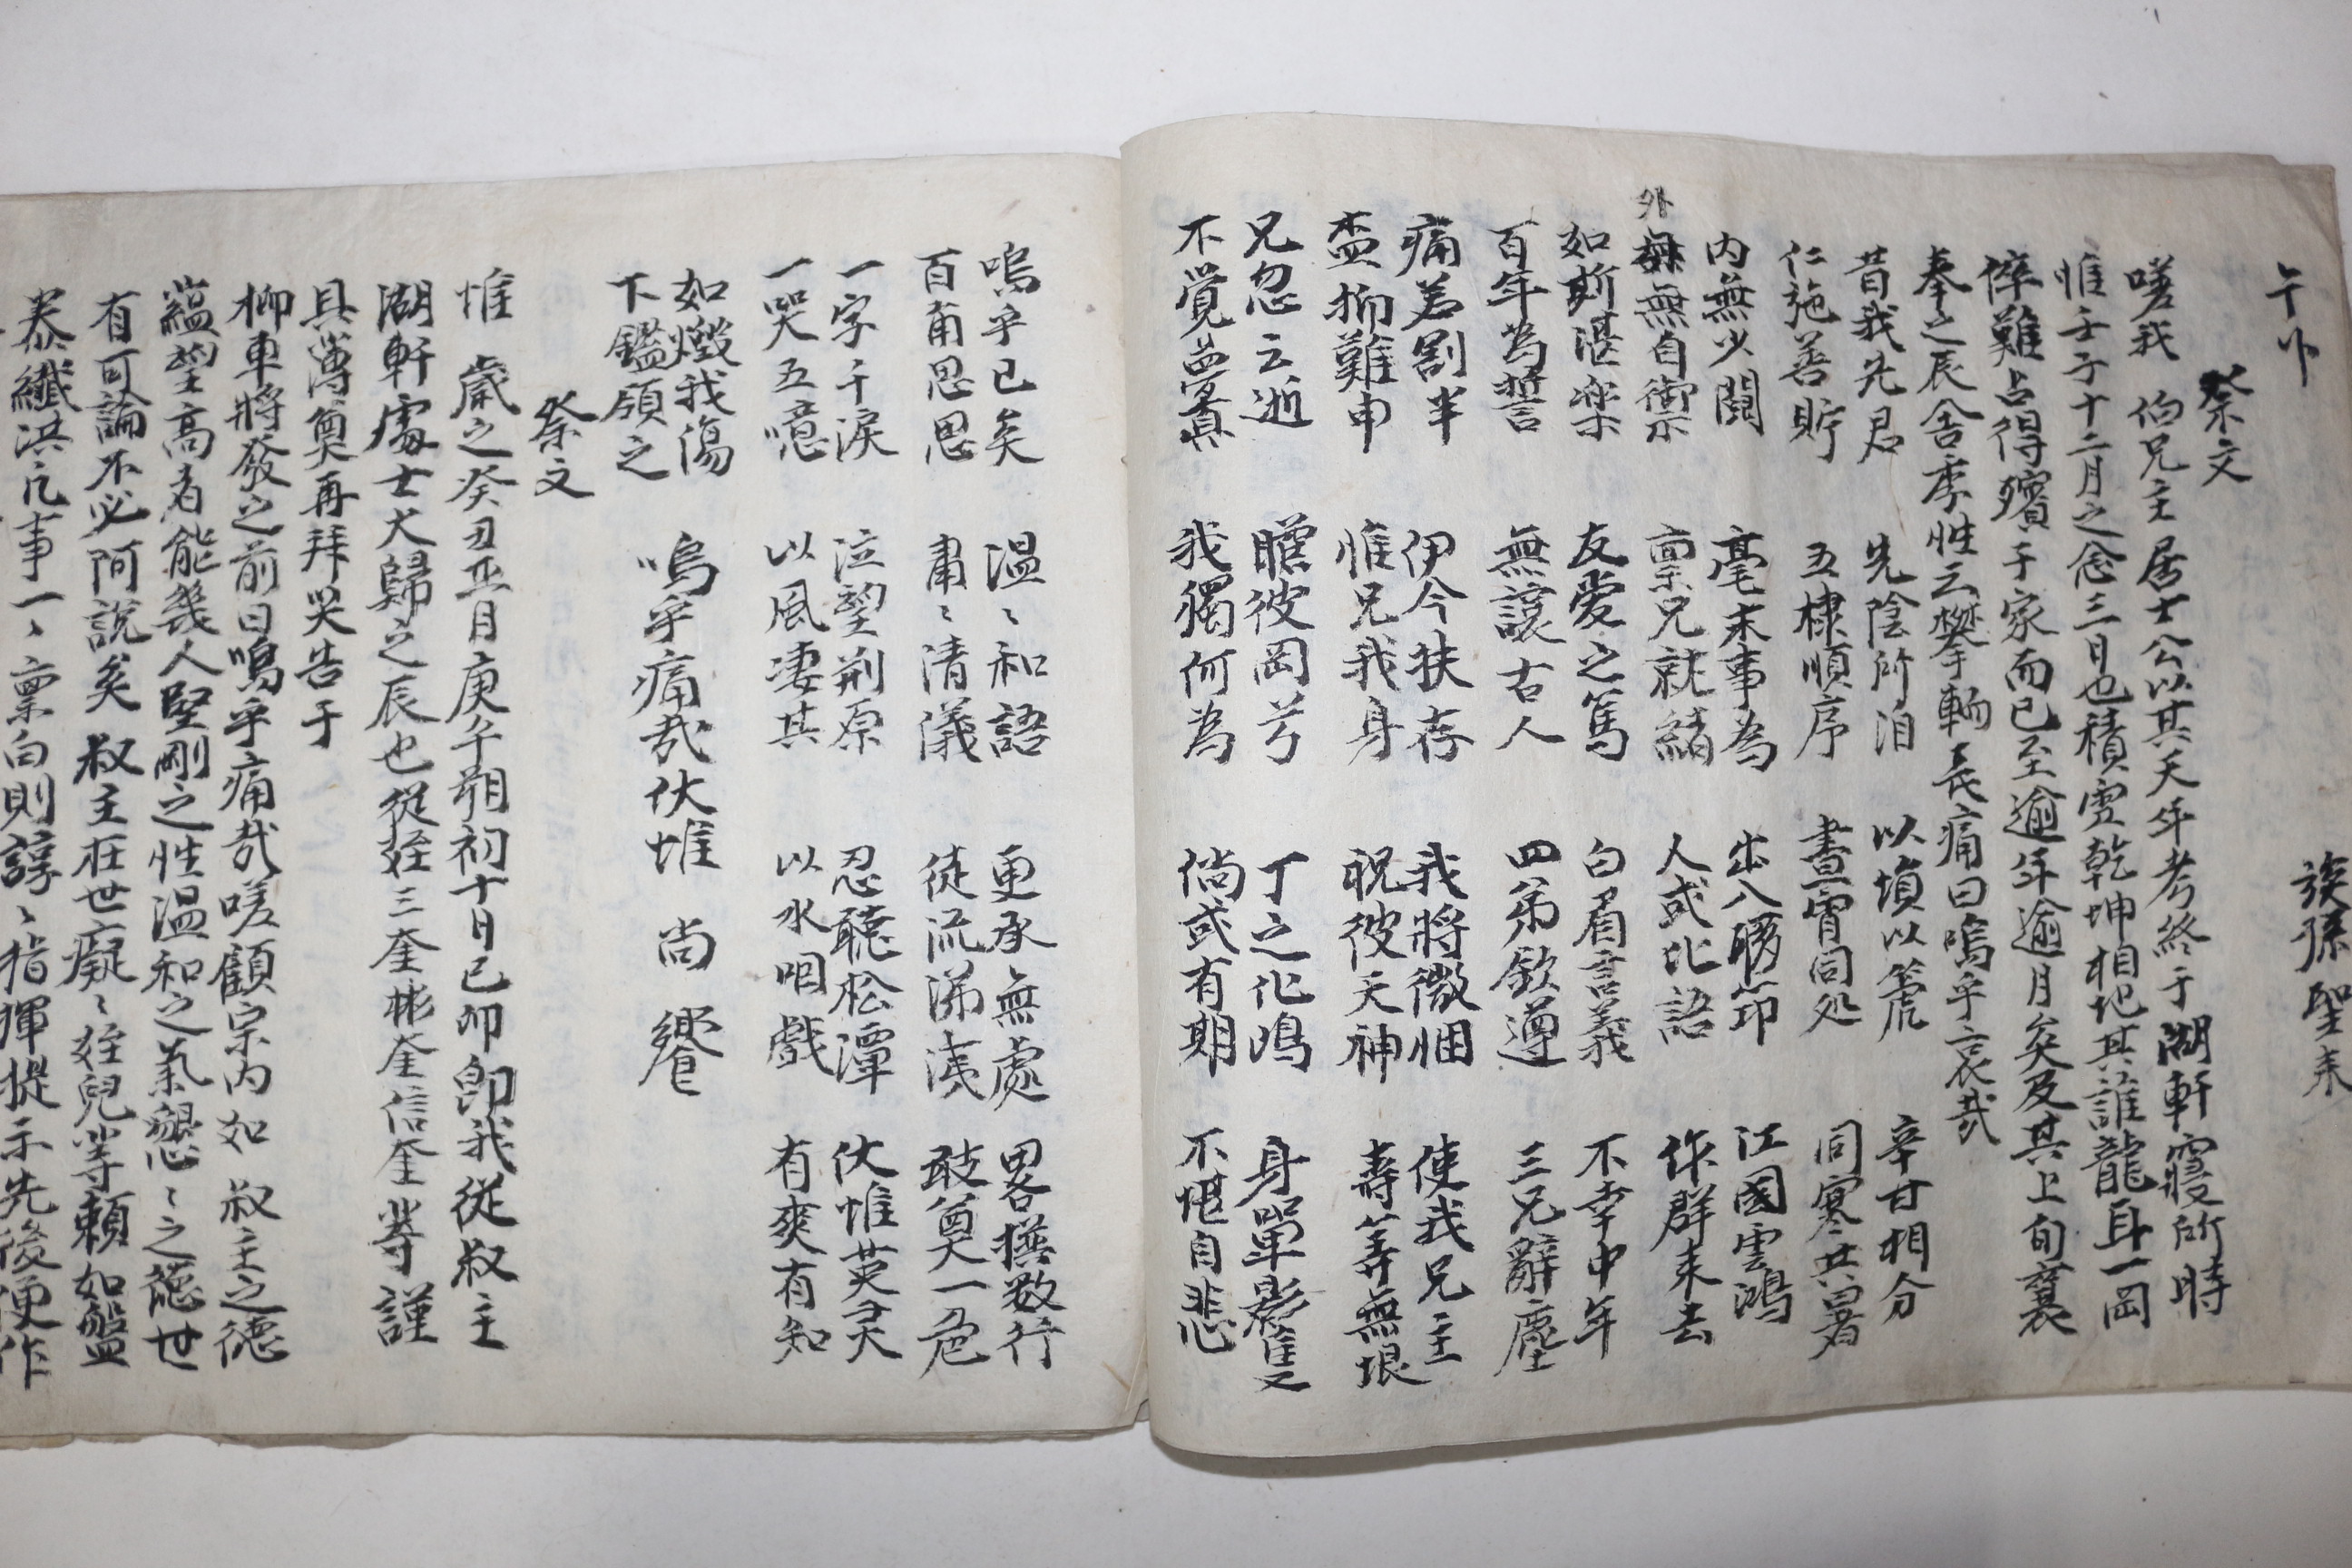 午卟
族孫聖来
祭文
嗟我 伯兄主居士公以其天年考終于湖軒寢所時
惟壬子十二月之念三日也積雪乾坤相地其誰龍耳一岡
倅難占得殯于家而已至逾年逾月矣及其上旬襄
奉之辰舍季性云攀輀長痛曰嗚乎哀哉
昔我先君 先陰所泊 以塤以篪 辛甘相分
仁施善貯 五棣順序 晝宵同处 同寒共暑
内無少鬩 毫末事為 出入 節 江國雲鴻
外無自御 稟兄就緒 人或比語 作群来去
如斯湛楽 友愛之篤 白眉言義 不幸中年
百年為誓 無讓古人 四弟欽遵 三兄辭塵
痛若割半 伊今扶存 我將微悃 使我兄主
盃抑難申 惟兄我身 祝彼天神 壽筭無垠
兄忽云逝 瞻彼岡兮 丁之化鳴 身單影隻
不覚夢真 我獨何為 倘或有期 不堪自悲
嗚乎已矣 温〻和語 更承無處 畧撰数行
百甭思思 肅〻清儀 徒流涕洟 敢奠一巵
一字千淚 泣望荊原 忍聽松潭 伏惟英灵
一哭五噫 以風凄其 以水咽戲 有爽有知
如燬我傷
下鑑領之 嗚乎痛哉伏惟 尚 饗
祭文
惟 歲之癸丑正月庚午朔初十日己卯即我從叔主
湖軒處士大歸之辰也從姪三奎彬奎信奎等謹
具薄奠再拜哭告于
柳車將發之前曰嗚乎痛哉嗟顧宗内如 叔主之德
蘊望高者能幾人堅剛之性温和之氣懇〻之 世
有可論不必阿說矣 叔主在世癡〻姪兒等賴如盤
泰纖洪凡事一〻稟白則諄〻指揮提示先後便作